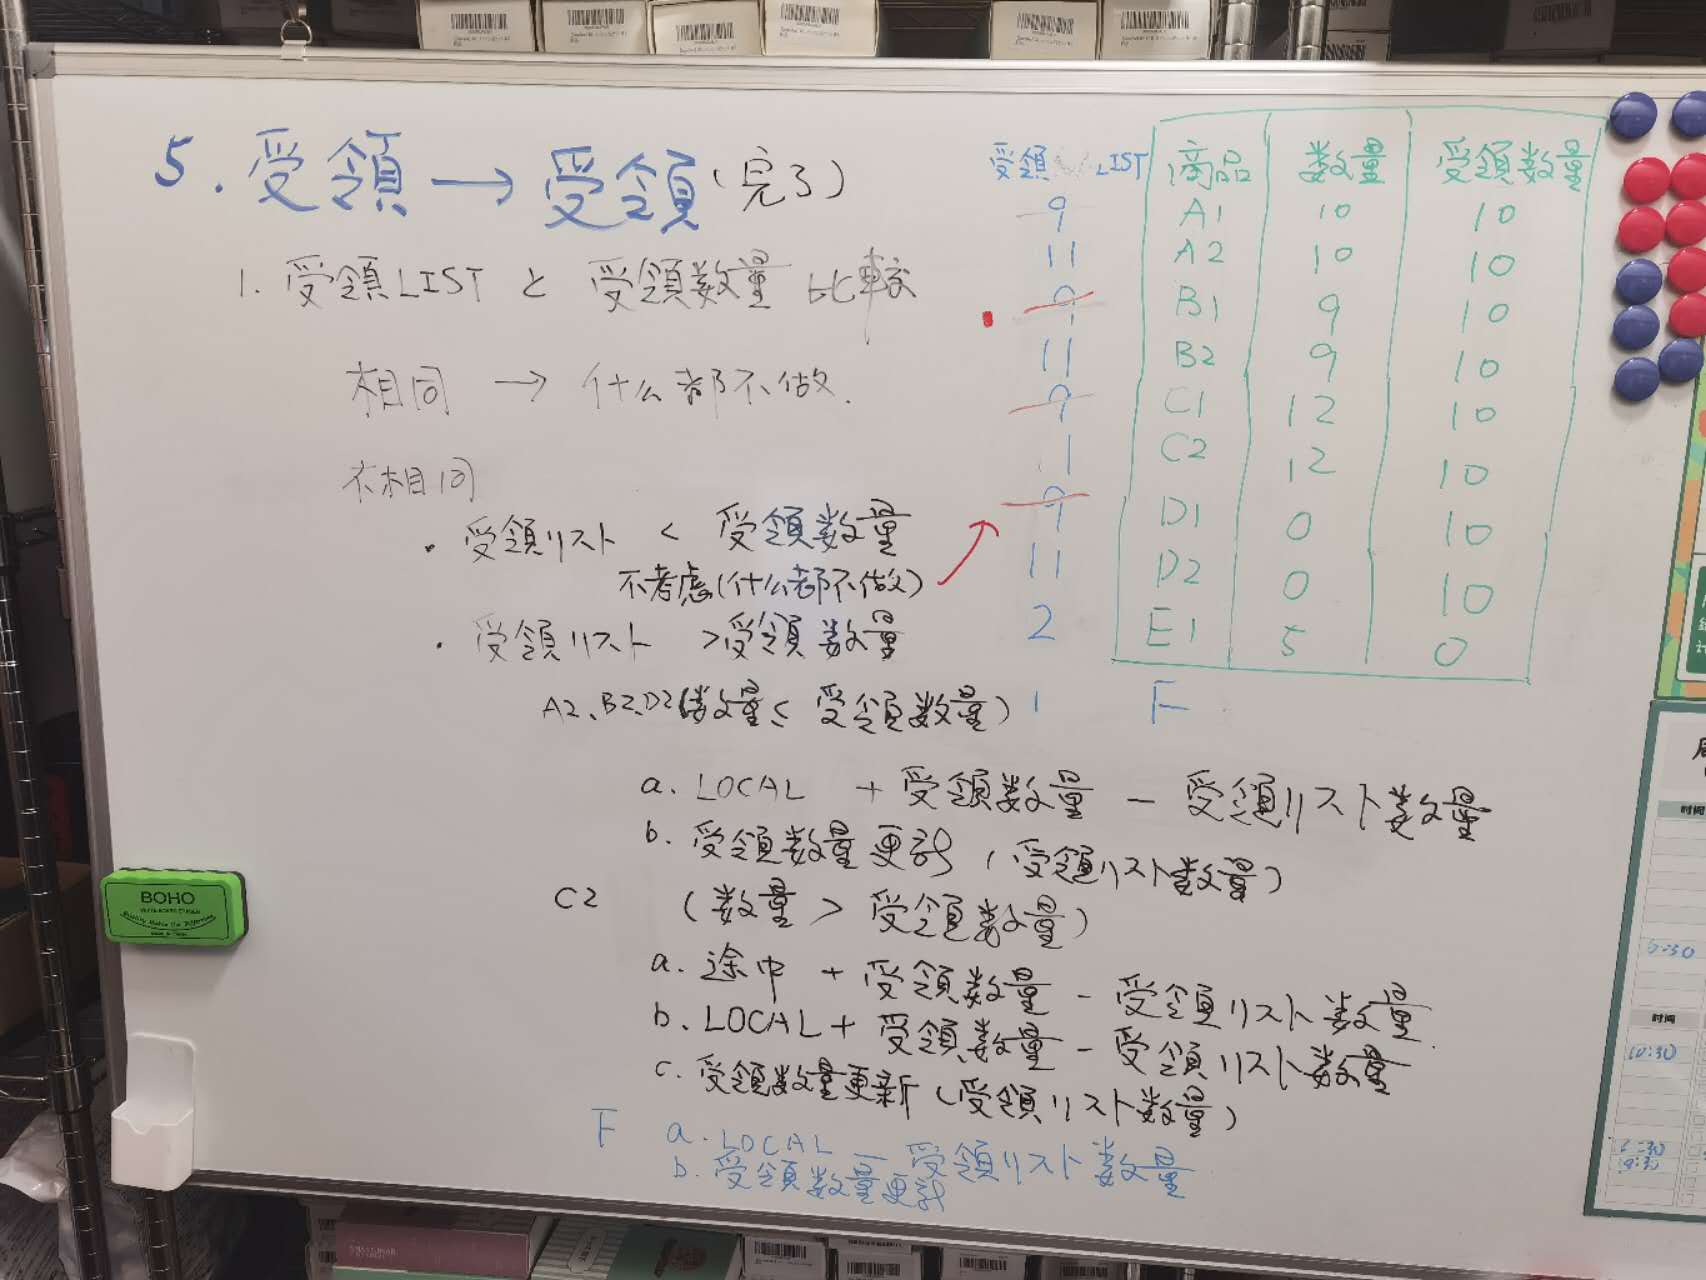 5. 受領 → 受領 (完了)
1. 受領LIST と 受領数量 比較
相同 → 什么都不做.
不相同
・受領リスト < 受領数量
不考慮(什么都不做)
・受領リスト >受領数量
A2、B2、D2(数量≤ 受領数量)
a. LOCAL + 受領数量 - 受領リスト数量
b. 受領数量更新 (受領リスト数量)
C2 (数量 > 受領数量)
a. 途中 + 受領数量 - 受領リスト数量
b. LOCAL + 受領数量 - 受領リスト数量
c. 受領数量更新 (受領リスト数量)
F a. LOCAL - 受領リスト数量
b. 受領数量更新
受領 LIST 商品 数量 受領数量
9 A1 10 10
11 A2 10 10
9 B1 9 10
11 B2 9 10
9 C1 12 10
1 C2 12 10
9 D1 0 10
11 D2 0 10
2 E1 5 0
1 F
BOHO
时间
6:30
时间
10:30